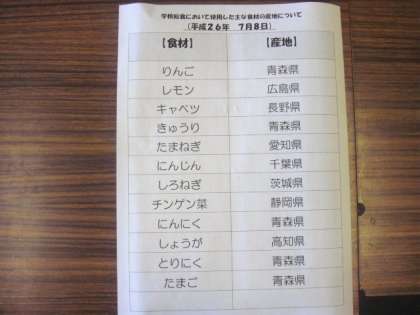 学校給食において使用した主な食材の産地について
（平成２６年　７月８日）
【食材】 【産地】
りんご 青森県
レモン 広島県
キャベツ 長野県
きゅうり 青森県
たまねぎ 愛知県
にんじん 千葉県
しろねぎ 茨城県
チンゲン菜 静岡県
にんにく 青森県
しょうが 高知県
とりにく 青森県
たまご 青森県